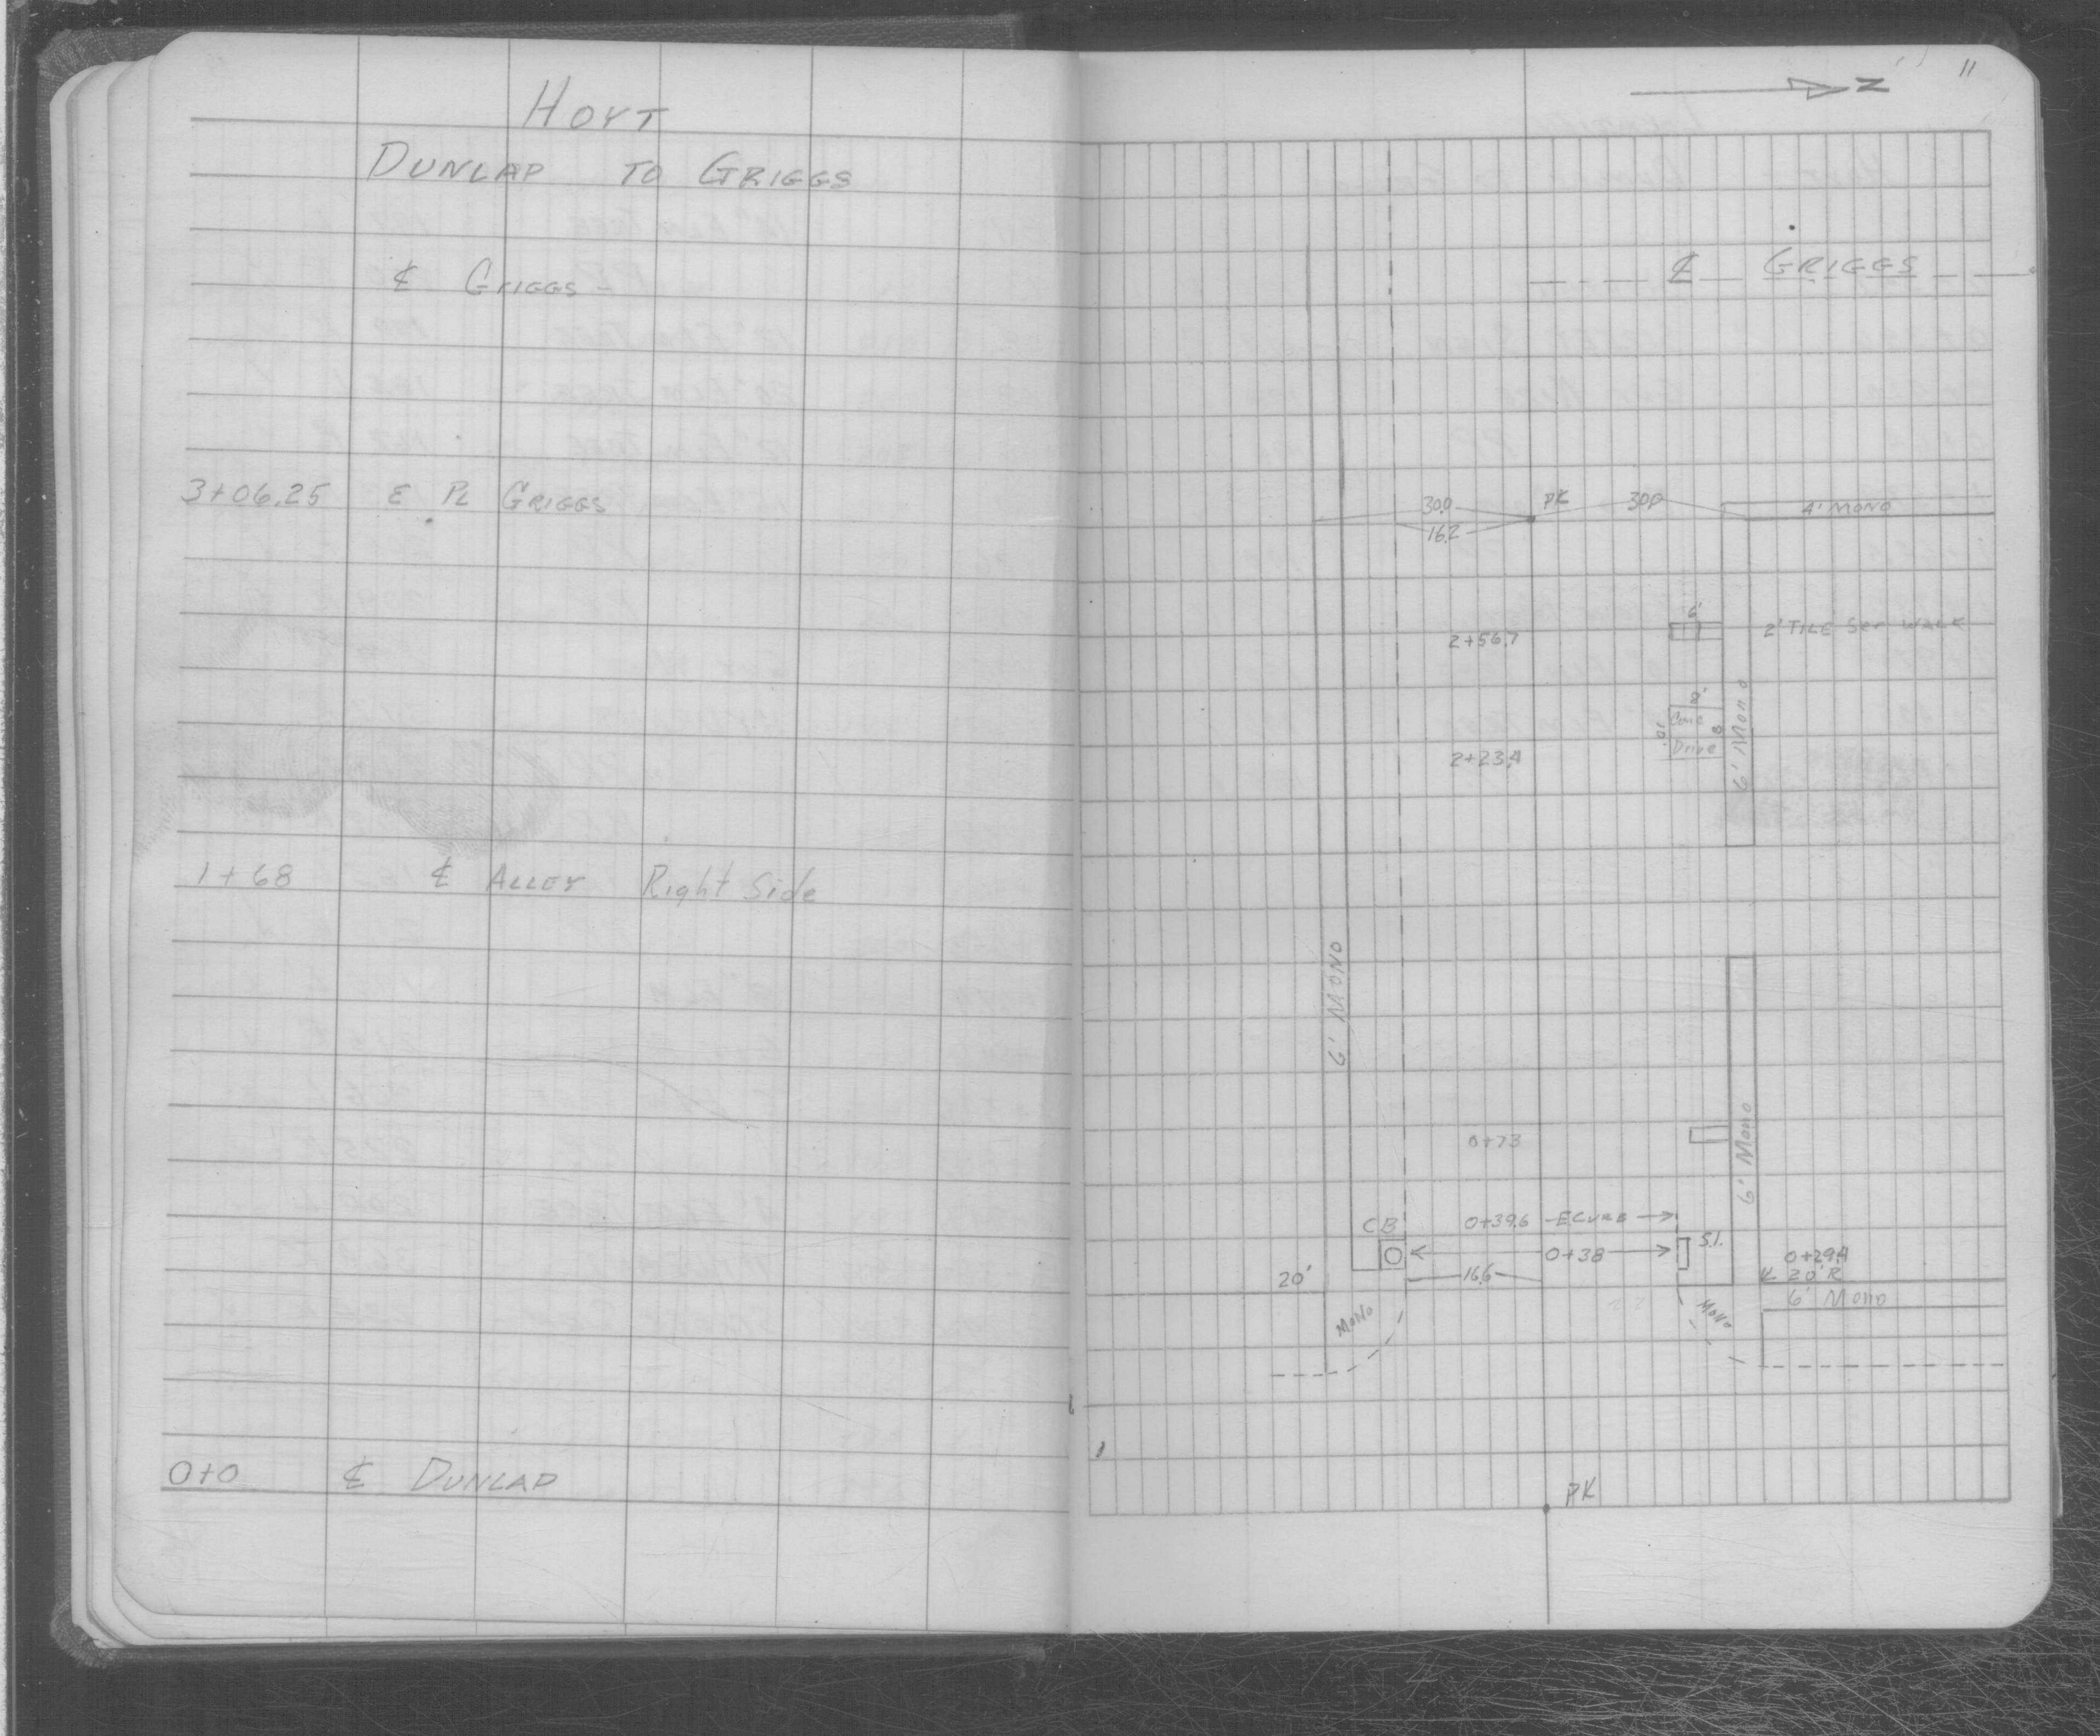 HOYT
DUNLAP TO GRIGGS
℄ GRIGGS -
3+06.25 E PL GRIGGS
1+68 ℄ ALLEY Right Side
0+0 ℄ DUNLAP
11
N
℄ GRIGGS
30.0 PK 30.0 4' MONO
16.2
6'
2+56.7 2' TILE Set WALK
8'
Conc
10' 8
Drive
2+23.4
6' Mono
6' MONO
0+73
6' Mono
CB 0+39.6 -E CURB
0+38 S.I. 0+29.4
20' 16.6 20' R
6' Mono
MONO MONO
PK